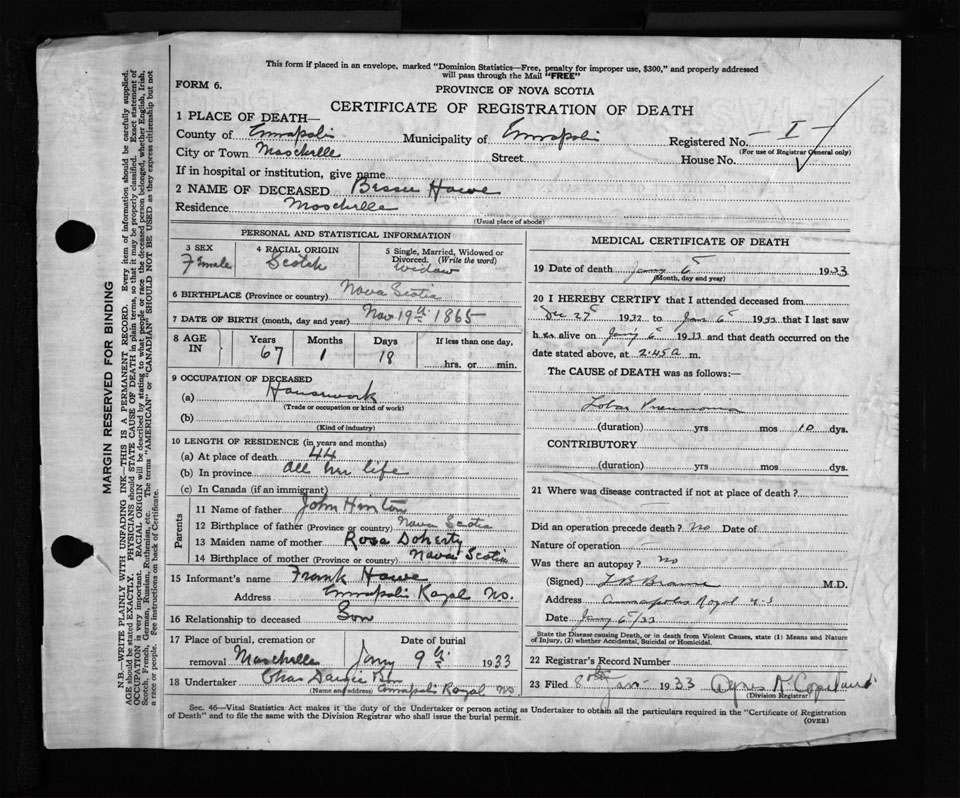 This form if placed in an envelope, marked "Dominion Statistics—Free, penalty for improper use, $300," and properly addressed
will pass through the Mail "FREE"
FORM 6.
PROVINCE OF NOVA SCOTIA
CERTIFICATE OF REGISTRATION OF DEATH
1 PLACE OF DEATH—
County of Annapolis Municipality of Annapolis Registered No. — I —
(For use of Registrar General only)
City or Town Moschelle Street House No.
If in hospital or institution, give name
2 NAME OF DECEASED Bessie Howe
Residence Moschelle
(Usual place of abode)
PERSONAL AND STATISTICAL INFORMATION
3 SEX Female
4 RACIAL ORIGIN Scotch
5 Single, Married, Widowed or Divorced. (Write the word) widow
6 BIRTHPLACE (Province or country) Nova Scotia
7 DATE OF BIRTH (month, day and year) Nov 19th 1865
8 AGE IN Years 67 Months 1 Days 18 If less than one day, hrs. or min.
9 OCCUPATION OF DECEASED
(a) Housework
(Trade or occupation or kind of work)
(b)
(Kind of industry)
10 LENGTH OF RESIDENCE (in years and months)
(a) At place of death 44
(b) In province all her life
(c) In Canada (if an immigrant)
Parents
11 Name of father John Hinton
12 Birthplace of father (Province or country) Nova Scotia
13 Maiden name of mother Rosa Doherty
14 Birthplace of mother (Province or country) Nova Scotia
15 Informant's name Frank Howe
Address Annapolis Royal NS.
16 Relationship to deceased Son
17 Place of burial, cremation or removal Moschelle Date of burial Jany 9th 1933
18 Undertaker Chas
(Name and address) Annapolis Royal NS
MEDICAL CERTIFICATE OF DEATH
19 Date of death Jany 6 1933
(Month, day and year)
20 I HEREBY CERTIFY that I attended deceased from
Dec 27 1932 to Jan 6 1933 that I last saw
her alive on Jany 6 1933 and that death occurred on the
date stated above, at 2.45 a m.
The CAUSE of DEATH was as follows:—
Lobar Pneumonia
(duration) yrs mos 10 dys.
CONTRIBUTORY
(duration) yrs mos dys.
21 Where was disease contracted if not at place of death?
Did an operation precede death? No Date of
Nature of operation
Was there an autopsy? No
(Signed) L B Braine M.D.
Address Annapolis Royal N.S
Date Jany 6/33
State the Disease causing Death, or in death from Violent Causes, state (1) Means and Nature
of Injury, (2) whether Accidental, Suicidal or Homicidal.
22 Registrar's Record Number
23 Filed 8th Jan 1933 Agnes R. Copeland
(Division Registrar)
Sec. 46—Vital Statistics Act makes it the duty of the Undertaker or person acting as Undertaker to obtain all the particulars required in the "Certificate of Registration
of Death" and to file the same with the Division Registrar who shall issue the burial permit.
(OVER)
MARGIN RESERVED FOR BINDING
N.B.—WRITE PLAINLY WITH UNFADING INK—THIS IS A PERMANENT RECORD. Every item of information should be carefully supplied.
AGE should be stated EXACTLY. PHYSICIANS should STATE CAUSE OF DEATH in plain terms, so that it may be properly classified. Exact statement of
OCCUPATION is very important. RACIAL ORIGIN will be described by stating to what people or race the deceased person belonged, whether English, Irish,
Scotch, French, German, Russian, Ruthenian, etc. The terms "AMERICAN" or "CANADIAN" SHOULD NOT BE USED as they express citizenship but not
a race or people. See instructions on back of Certificate.